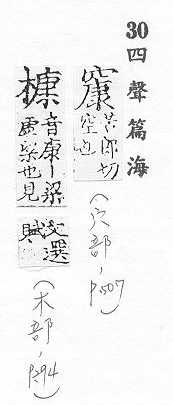 30 四聲篇海
苦郎切
空也
(穴部, P507)
槺
音康丨梁
虛梁也見
文選
賦
(木部,